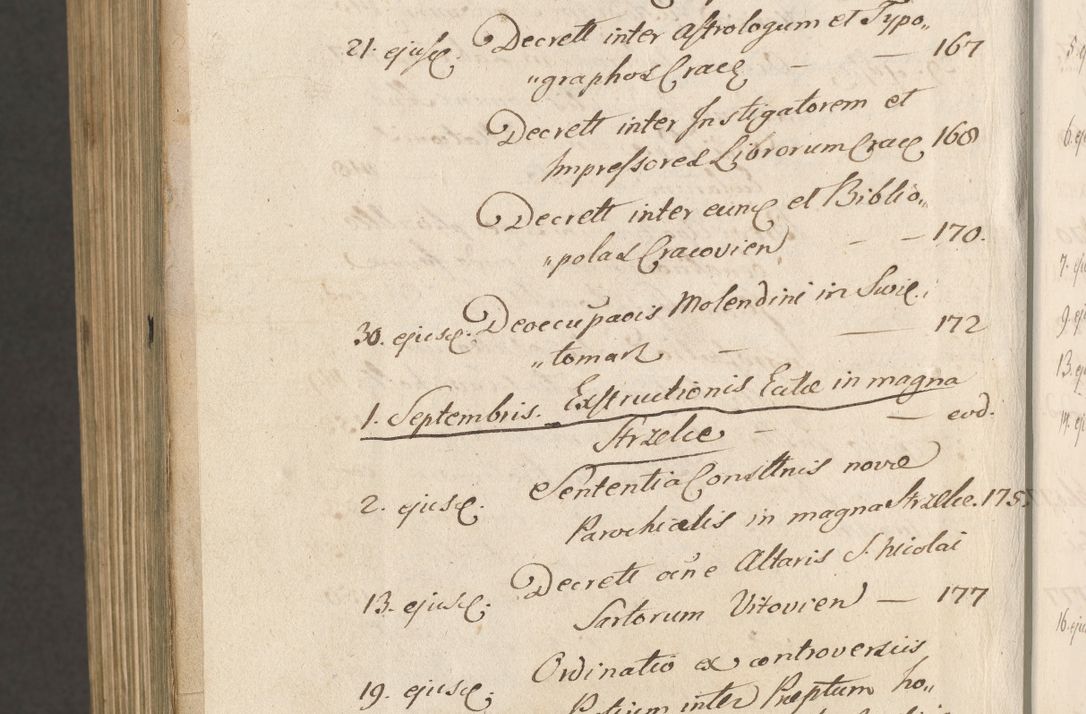 21. ejusq; Decrett inter Astrologum et Typo„
„graphos Cracq — — 167
Decrett inter Instigatorem et
Impressores Librorum Cracq 168
Decrett inter eunq et Biblio„
„polas Cracovien — — 170.
30. ejusq. Deoccupaois Molendini in Swię„
„toman — — 172
1. Septembris. Exstructionis Eccæ in magna
Strzelce — — eod.
2. ejusq. Sententia Consttnis novæ
Parochialis in magna Strzelce. 175.
13. ejusq. Decrett oc̃ne Altaris S. Nicolai
Sartorum Vitovien — 177
19. ejusq; Ordinatio ex controversiis
Partium inter Præptum ho„